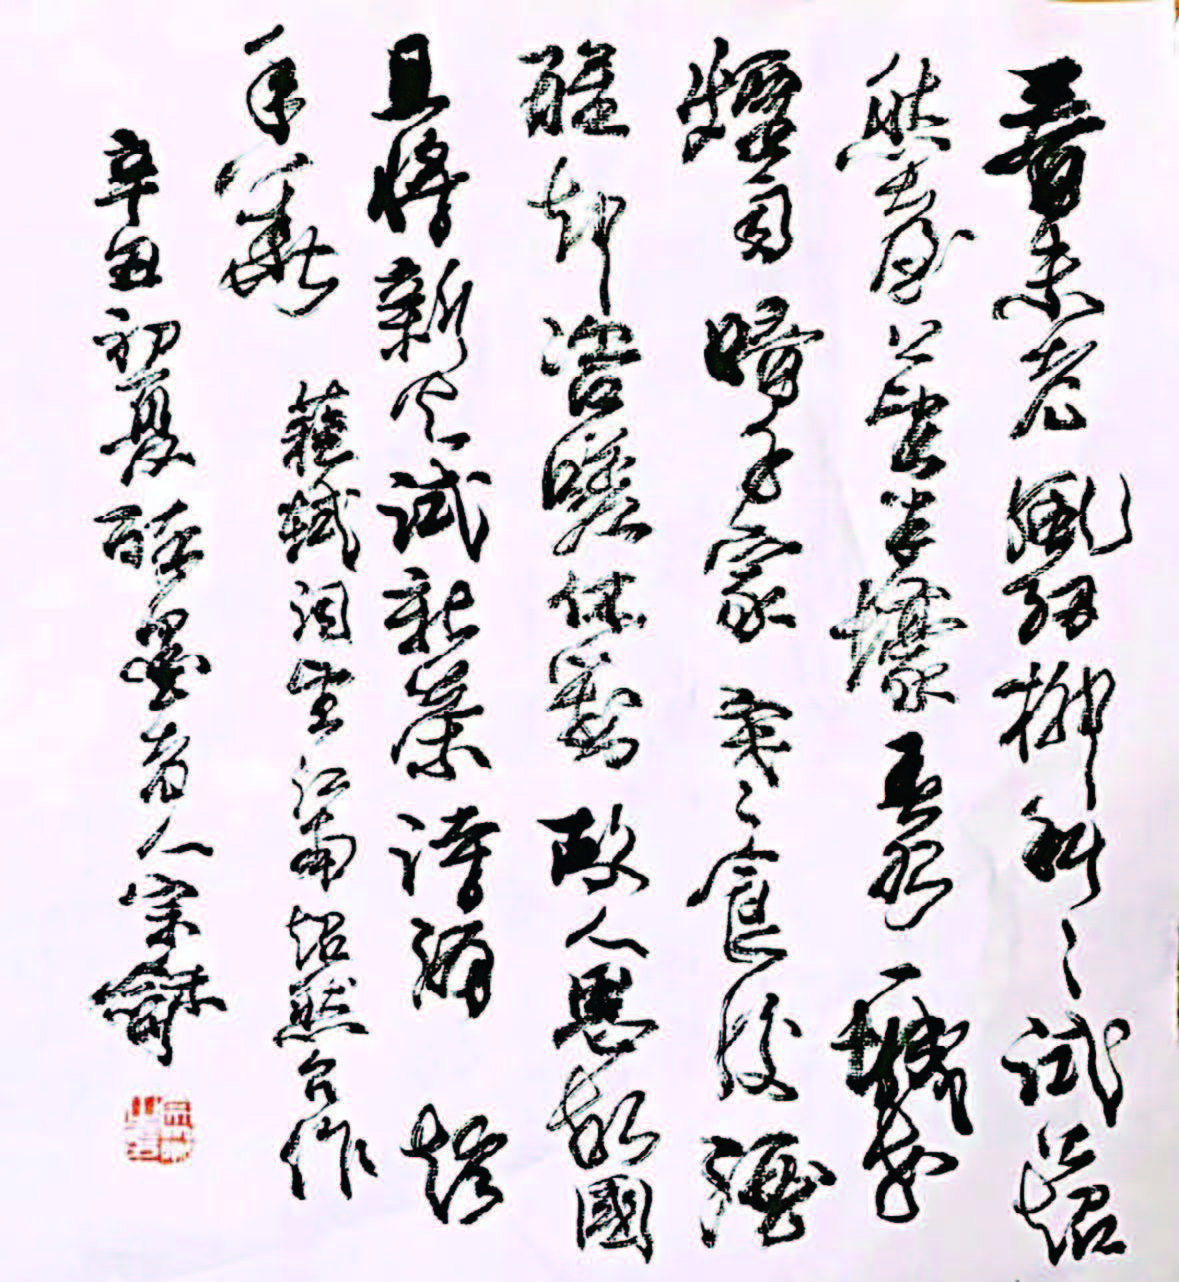 春未老風細柳斜斜試上超
然臺上望半壕春水一城花
煙雨暗千家寒食後酒
醒卻咨嗟休對故人思故國
且將新火試新茶詩酒趁
年華
蘇軾望江南超然台作
辛丑初夏墨人宗龢